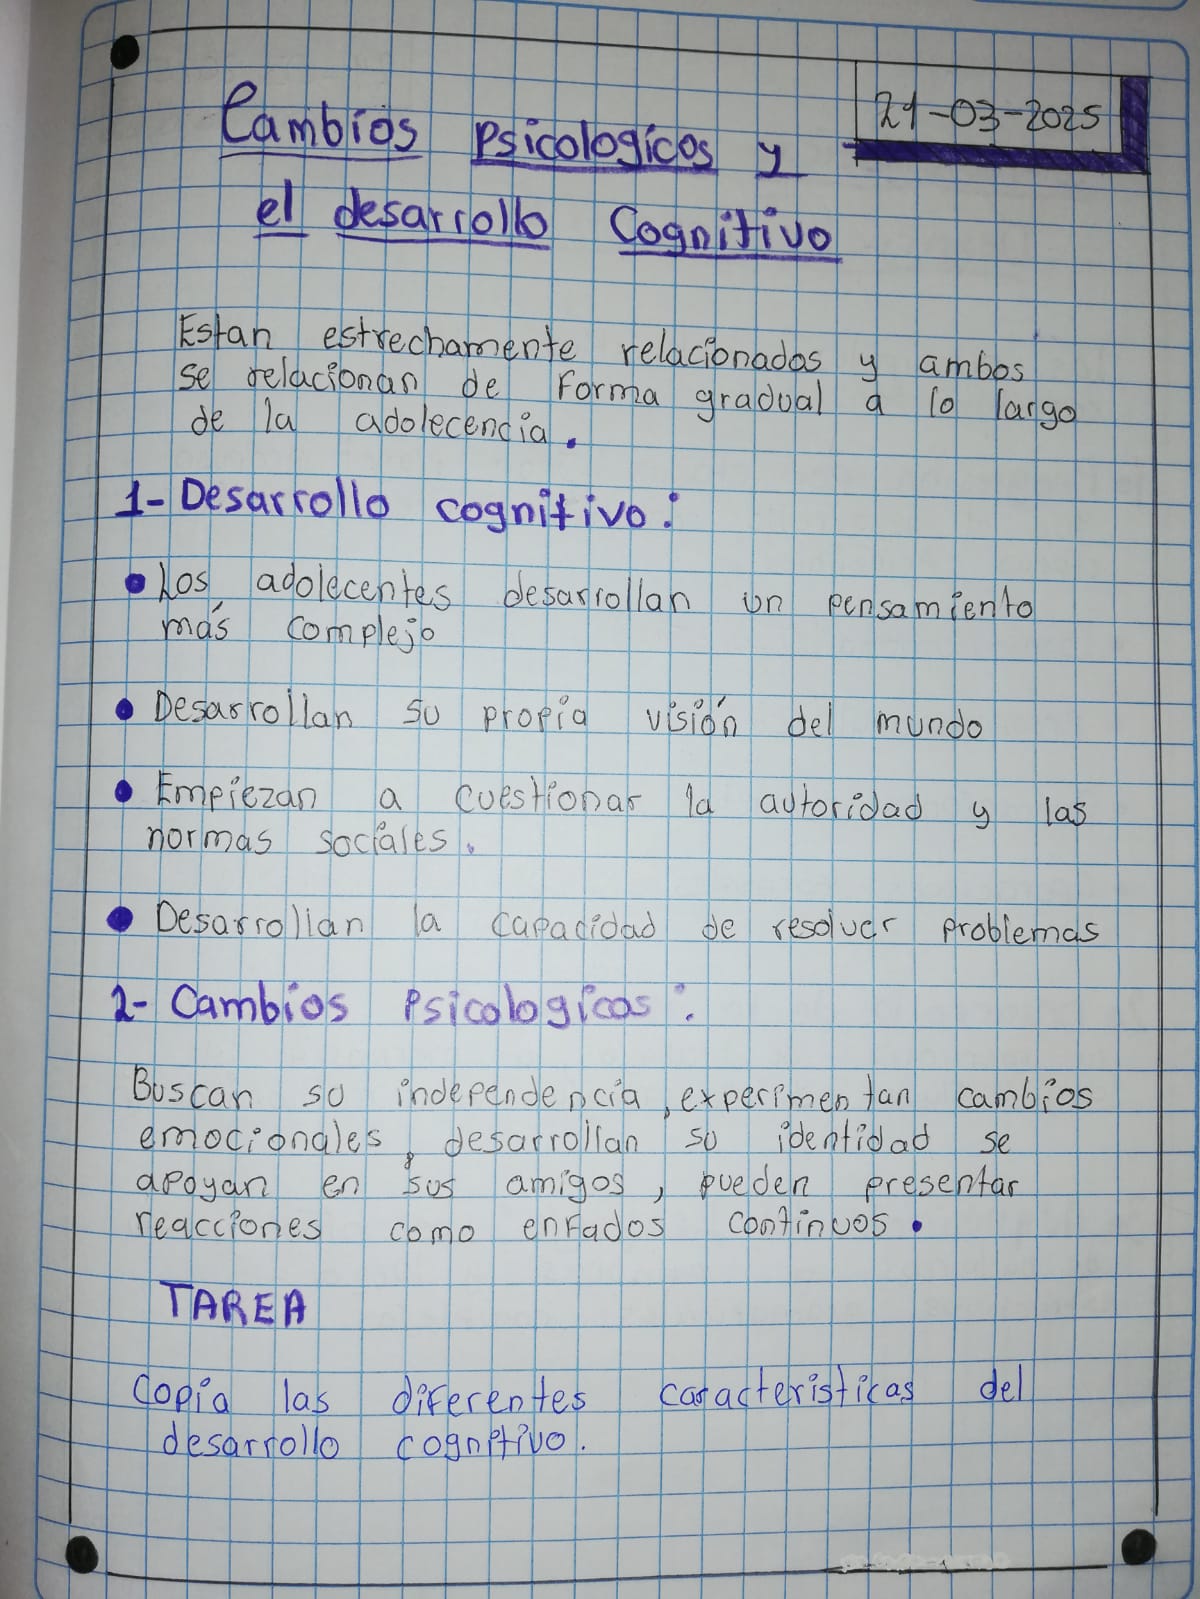 21-03-2025
Cambios Psicologicos y
el desarrollo Cognitivo
Estan estrechamente relacionados y ambos
se relacionan de Forma gradual a lo largo
de la adolecencia.
1- Desarrollo cognitivo:
• Los adolecentes desarrollan un pensamiento
más complejo
• Desarrollan su propia visión del mundo
• Empiezan a cuestionar la autoridad y las
normas sociales.
• Desarrollan la capacidad de resolver problemas
2- Cambios Psicologicos:
Buscan su independencia, experimentan cambios
emocionales, desarrollan su identidad se
apoyan en sus amigos, pueden presentar
reacciones como enfados continuos.
TAREA
Copia las diferentes caracteristicas del
desarrollo cognitivo.